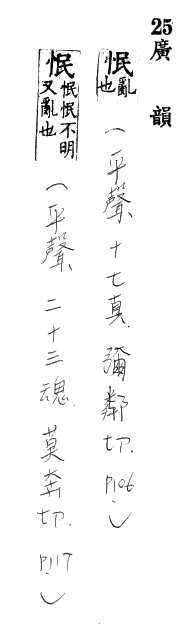 25廣韻
怋亂也(平聲十七真.彌鄰切.P.106.)
怋怋怋不明又亂也(平聲二十三魂.莫奔切.P.117.)